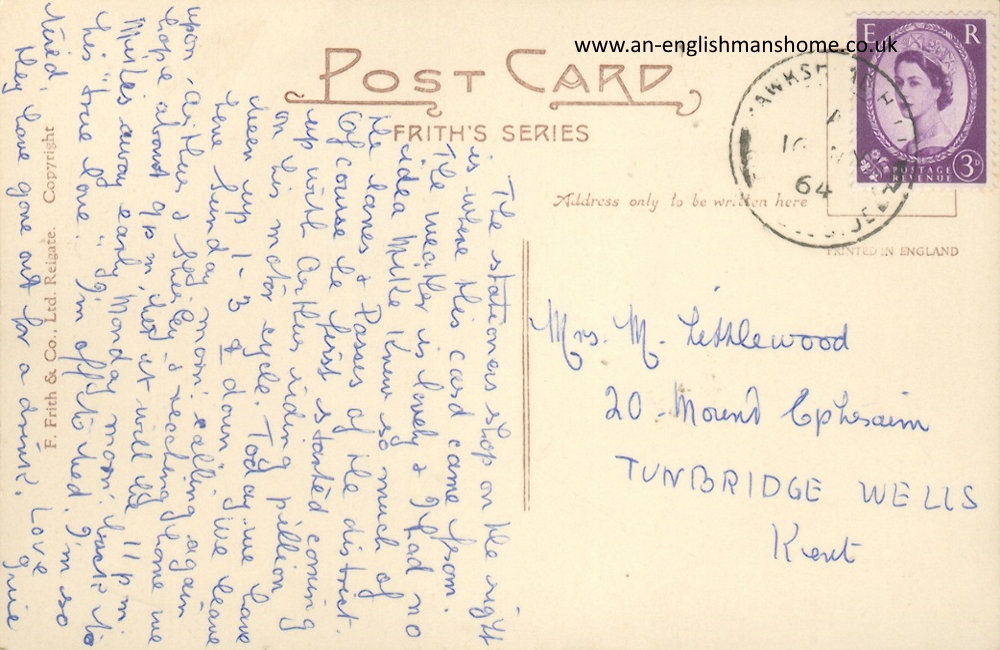 www.an-englishmanshome.co.uk
POST CARD
FRITH'S SERIES
E R
POSTAGE
REVENUE
3D
HAWKSHEAD
16
64
Address only to be written here
PRINTED IN ENGLAND
F. Frith & Co., Ltd. Reigate. Copyright
Mrs. M. Littlewood
20 Mount Ephraim
TUNBRIDGE WELLS
Kent
The stationers shop on the right
is where this card came from.
The weather is lovely & I had no
idea Mike knew so much of
the lanes & Passes of the district.
Of course he first started coming
up with Arthur riding pillion
on his motor cycle. Today we have
been up 1-3 & down. We leave
here Sunday morn: calling again
upon Arthur & Shirley & reaching home we
hope about 9 p.m. then it will be 11 p.m.
Mike's away early Monday morn: back to
his "true love". I'm off to bed. I'm so
tired, they have gone out for a drink. Love